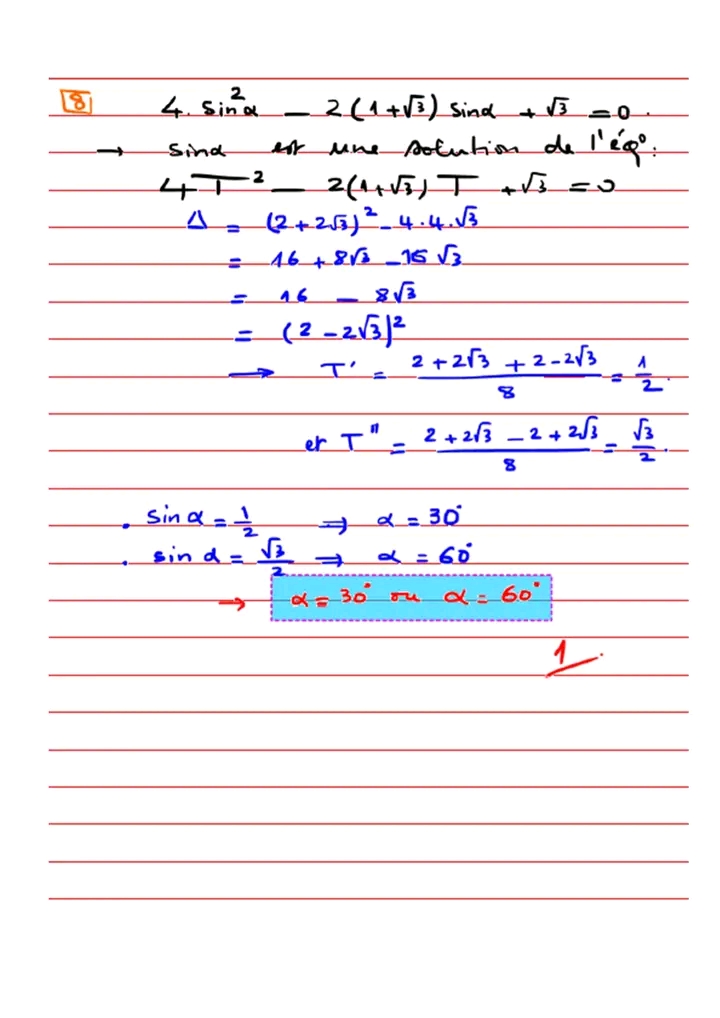 8 4. sin²α − 2(1+√3) sinα + √3 = 0.
→ sinα est une solution de l'éq°:
4T² − 2(1+√3)T + √3 = 0
Δ = (2+2√3)² − 4.4.√3
= 16 + 8√3 − 16√3
= 16 − 8√3
= (2 − 2√3)²
→ T' = (2+2√3 + 2−2√3)/8 = 1/2.
et T" = (2+2√3 − 2+2√3)/8 = √3/2.
. sin α = 1/2 ⇒ α = 30°
. sin α = √3/2 ⇒ α = 60°
→ α = 30° ou α = 60°
1